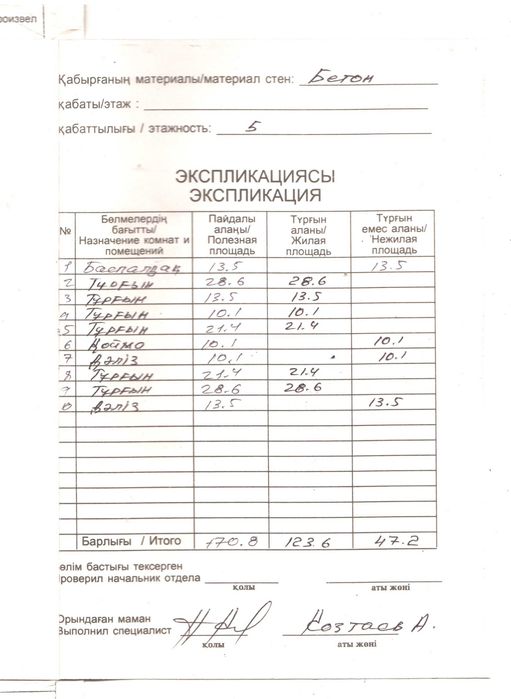 роизвел
Қабырғаның материалы/материал стен: Бетон
қабаты/этаж :
қабаттылығы / этажность: 5
ЭКСПЛИКАЦИЯСЫ
ЭКСПЛИКАЦИЯ
№ Бөлмелердің бағытты/ Назначение комнат и помещений Пайдалы алаңы/ Полезная площадь Тұрғын аланы/ Жилая площадь Тұрғын емес аланы/ Нежилая площадь
1 Баспалдақ 13.5 13.5
2 Тұрғын 28.6 28.6
3 Тұрғын 13.5 13.5
4 Тұрғын 10.1 10.1
5 Тұрғын 21.4 21.4
6 Қойма 10.1 10.1
7 Дәліз 10.1 10.1
8 Тұрғын 21.4 21.4
9 Тұрғын 28.6 28.6
0 Дәліз 13.5 13.5
Барлығы / Итого 170.8 123.6 47.2
өлім бастығы тексерген
Проверил начальник отдела
қолы аты жөні
Орындаған маман
Выполнил специалист Козтаев А.
қолы аты жөні